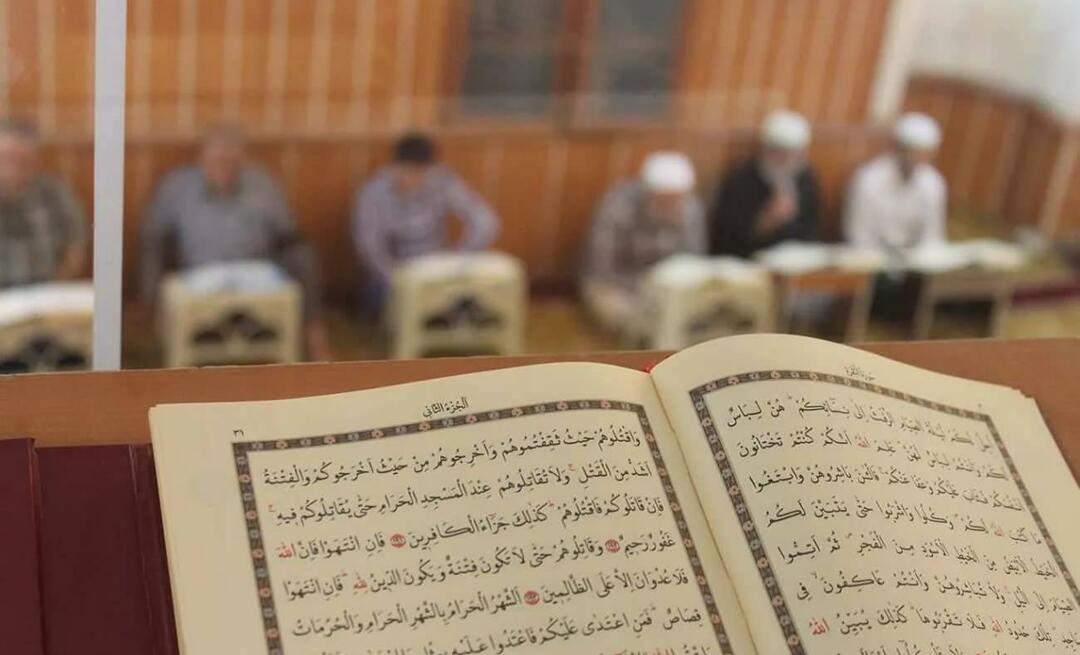 سورة البقرة
اُحِلَّ لَكُمْ لَيْلَةَ الصِّيَامِ الرَّفَثُ اِلٰى نِسَٓائِكُمْ هُنَّ لِبَاسٌ
لَكُمْ وَاَنْتُمْ لِبَاسٌ لَهُنَّ عَلِمَ اللّٰهُ اَنَّكُمْ كُنْتُمْ تَخْتَانُونَ
اَنْفُسَكُمْ فَتَابَ عَلَيْكُمْ وَعَفَا عَنْكُمْ فَالْـٰٔنَ بَاشِرُوهُنَّ وَابْتَغُوا
مَا كَتَبَ اللّٰهُ لَكُمْ وَكُلُوا وَاشْرَبُوا حَتّٰى يَتَبَيَّنَ لَكُمُ
الْخَيْطُ الْاَبْيَضُ مِنَ الْخَيْطِ الْاَسْوَدِ مِنَ الْفَجْرِ ثُمَّ اَتِمُّوا
الصِّيَامَ اِلَى الَّيْلِ وَلَا تُبَاشِرُوهُنَّ وَاَنْتُمْ عَاكِفُونَ فِي
تِلْكَ حُدُودُ اللّٰهِ فَلَا تَقْرَبُوهَا كَذٰلِكَ يُبَيِّنُ اللّٰهُ
اَلْجُزْءُ الثَّانِي
وَاقْتُلُوهُمْ حَيْثُ ثَقِفْتُمُوهُمْ وَاَخْرِجُوهُمْ مِنْ حَيْثُ اَخْرَجُوكُمْ وَالْفِتْنَةُ
اَشَدُّ مِنَ الْقَتْلِ وَلَا تُقَاتِلُوهُمْ عِنْدَ الْمَسْجِدِ الْحَرَامِ حَتّٰى يُقَاتِلُوكُمْ فِيهِ
فَاِنْ قَاتَلُوكُمْ فَاقْتُلُوهُمْ كَذٰلِكَ جَزَٓاءُ الْكَافِرِينَ فَاِنِ انْتَهَوْا فَاِنَّ اللّٰهَ
غَفُورٌ رَحِيمٌ وَقَاتِلُوهُمْ حَتّٰى لَا تَكُونَ فِتْنَةٌ وَيَكُونَ الدِّينُ لِلّٰهِ فَاِنِ انْتَهَوْا
فَلَا عُدْوَانَ اِلَّا عَلَى الظَّالِمِينَ اَلشَّهْرُ الْحَرَامُ بِالشَّهْرِ الْحَرَامِ وَالْحُرُمَاتُ
قِصَاصٌ فَمَنِ اعْتَدٰى عَلَيْكُمْ فَاعْتَدُوا عَلَيْهِ بِمِثْلِ مَا